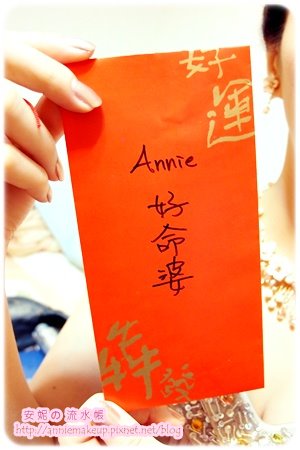 好運
Annie
好命婆
犇發
安妮の流水帳
http://anniemakeup.pixnet.net/blog